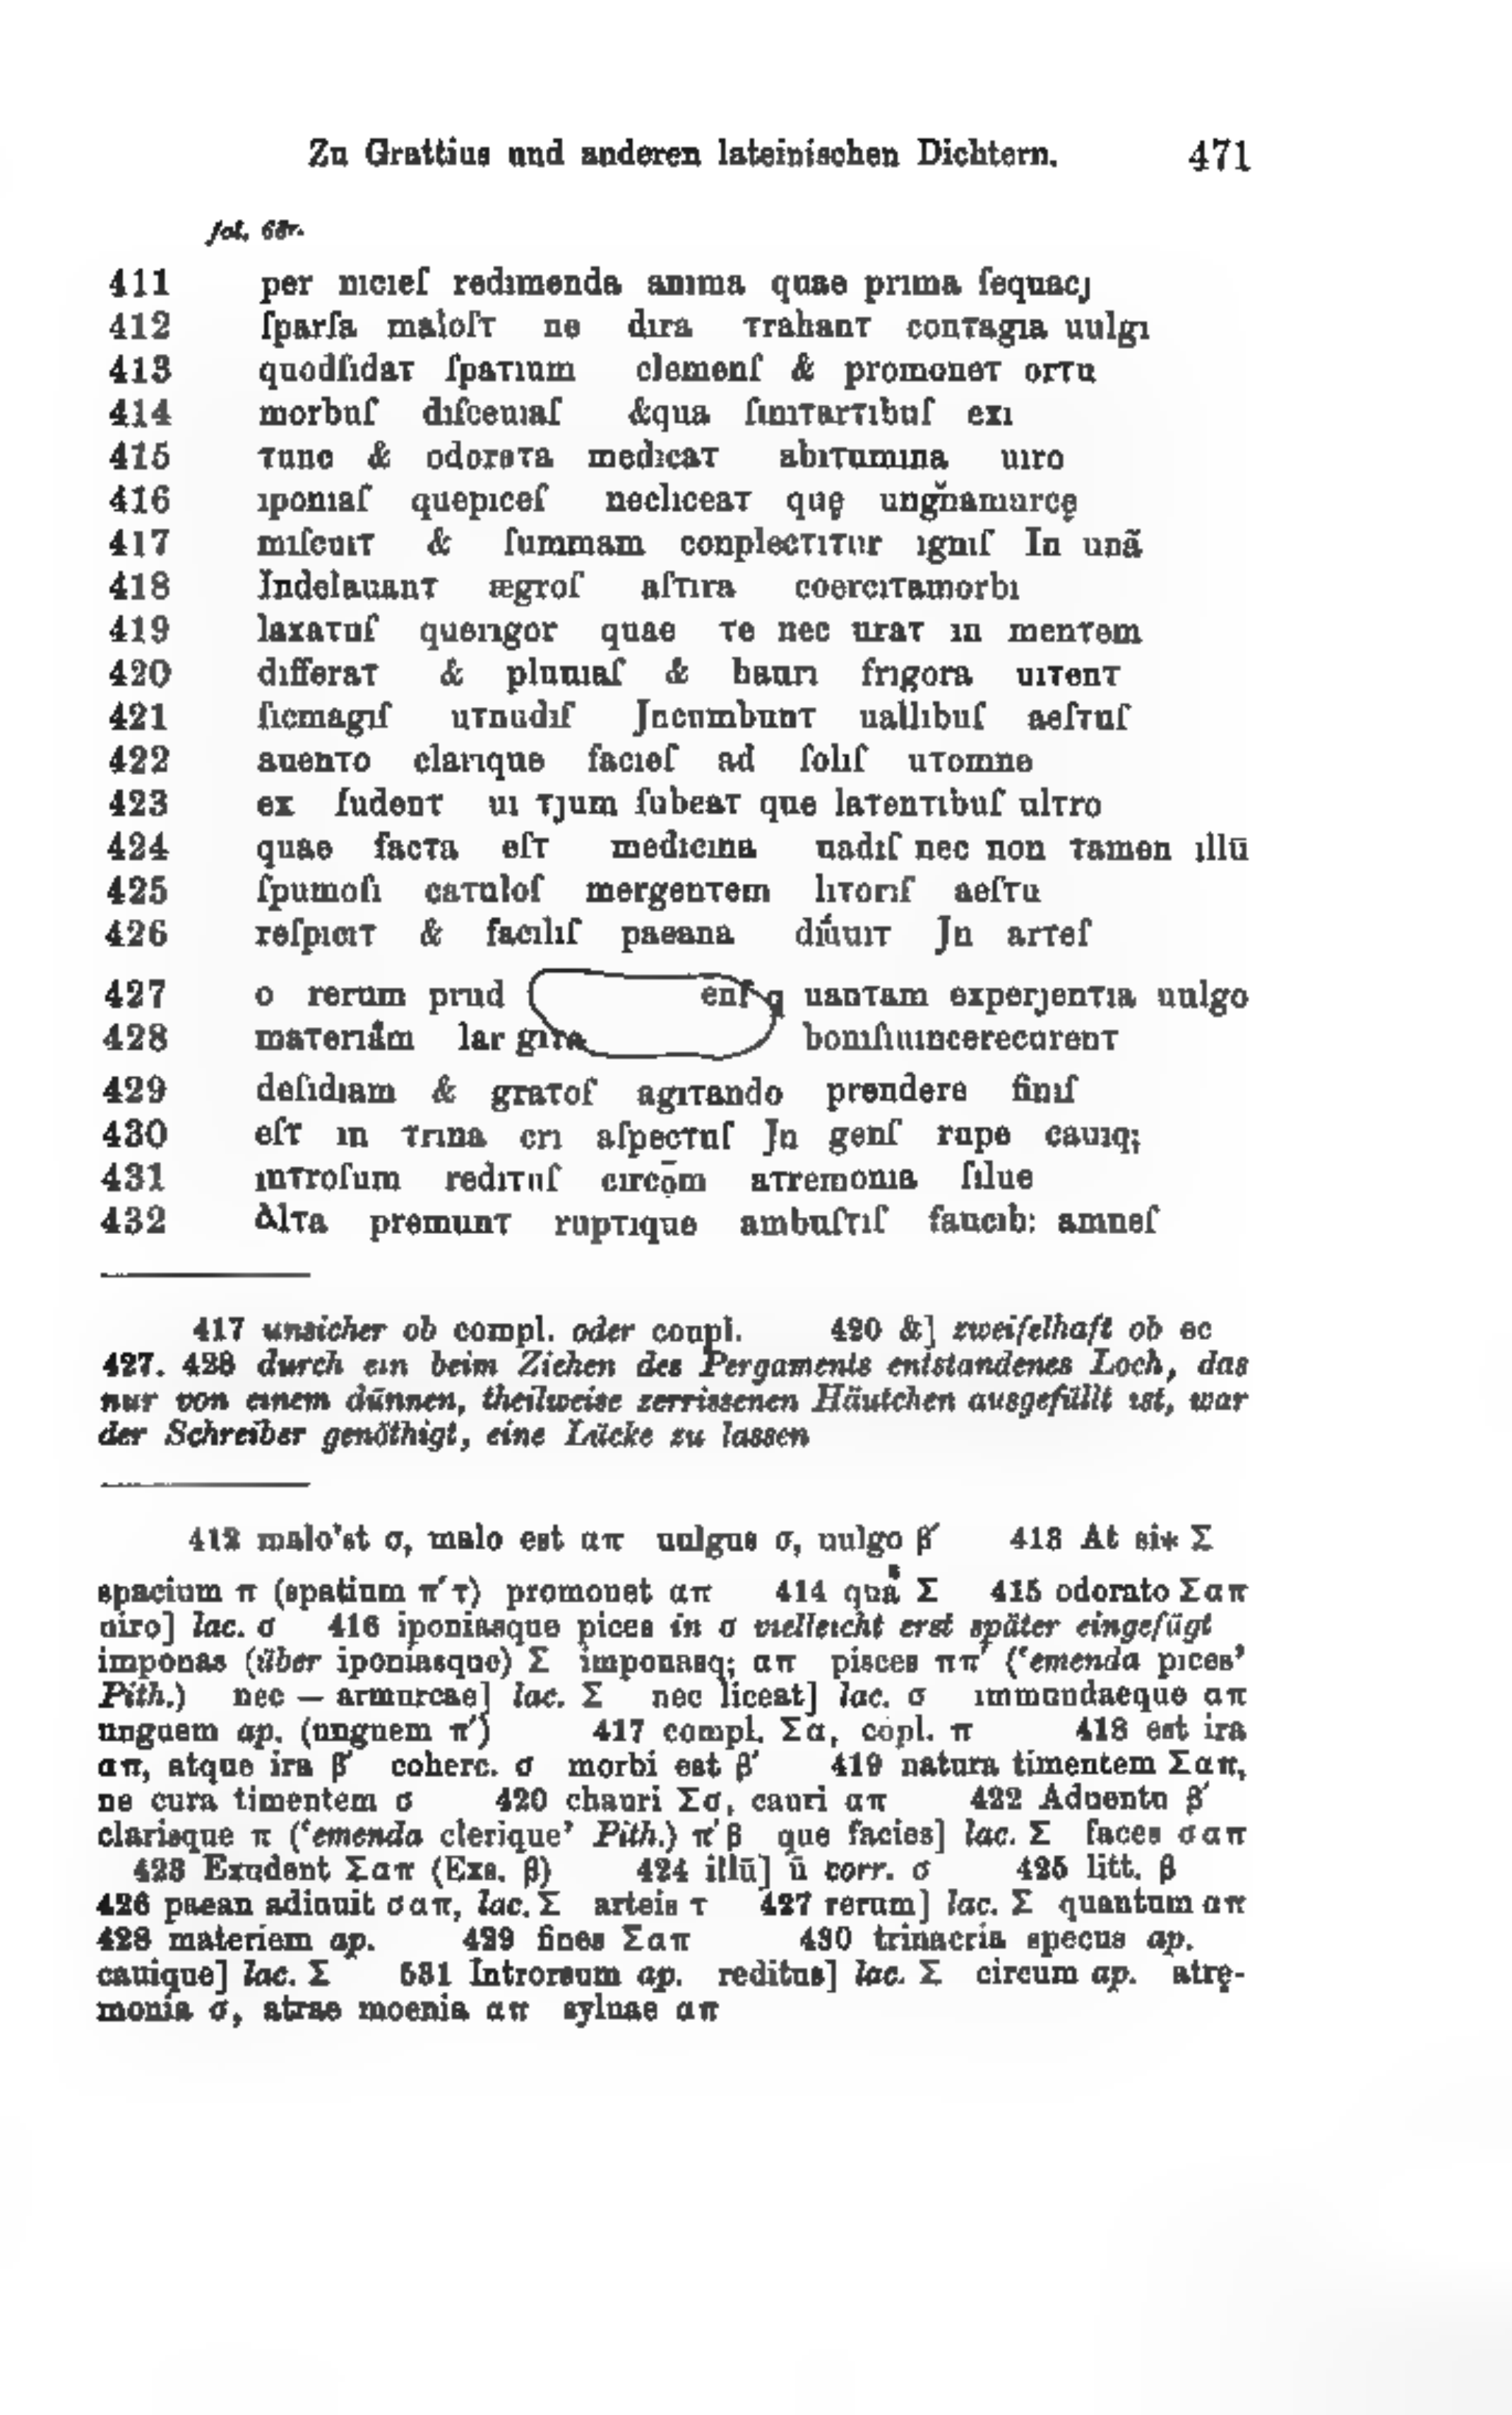 Zu Grattius und anderen lateinischen Dichtern. 471
fol. 68r.
411 per nıcıeſ redımenda anıma quae prıma ſequacȷ
412 ſparſa maloſτ ne dıra τrahanτ conτagıa uulgı
413 quodſıdaτ ſpaτıum clemenſ & promoneτ orτu
414 morbuſ dıſceuıaſ &qua ſınıτarτıbuſ exı
415 τunc & odoraτa medıcaτ abıτumına uıro
416 ıponıaſ quepıceſ neclıceaτ quę ungnamurcę
417 mıſcuıτ & ſummam conplecτıτur ıgnıſ In unā
418 Indelauanτ ægroſ aſτıra coercıτamorbı
419 laxaτuſ querıgor quae τe nec uraτ ın menτem
420 dıfferaτ & pluuıaſ & haurı frıgora uıτenτ
421 ſıcmagıſ uτnudıſ Jncumbunτ uallıbuſ aeſτuſ
422 auenτo clarıque facıeſ ad ſolıſ uτomne
423 ex ſudenτ uı τȷum ſubeaτ que laτenτıbuſ ulτro
424 quae facτa eſτ medıcına uadıſ nec non τamen ıllū
425 ſpumoſı caτuloſ mergenτem lıτorıſ aeſτu
426 reſpıcıτ & facılıſ paeana dıúuıτ Jn arτeſ
427 o rerum prud enſ q uanτam experȷenτıa uulgo
428 maτerıåm lar gıτa bonıſıuıncerecurenτ
429 deſıdıam & graτoſ agıτando prendere fınıſ
430 eſτ ın τrına crı aſpecτuſ Jn genſ rupe cauıq;
431 ınτroſum redıτuſ cırcōm aτremonıa ſılue
432 Alτa premunτ rupτıque ambuſτıſ faucıb: amneſ
417 unsicher ob compl. oder conpl. 420 &] zweifelhaft ob ec
427. 428 durch ein beim Ziehen des Pergaments entstandenes Loch, das
nur von einem dünnen, theilweise zerrissenen Häutchen ausgefüllt ist, war
der Schreiber genöthigt, eine Lücke zu lassen
412 malo'st σ, malo est απ uulgus σ, uulgo β′ 413 At si* Σ
spacium π (spatium π′τ) promouet απ 414 qua Σ 415 odorato Σαπ
uiro] lac. σ 416 iponiasque pices in σ vielleicht erst später eingefügt
imponas (über iponiasque) Σ imponasq; απ pisces ππ′ (‘emenda pices’
Pith.) nec — armurcae] lac. Σ nec liceat] lac. σ immundaeque απ
unguem ap. (unguem π′) 417 compl. Σα, cōpl. π 418 est ira
απ, atque ira β′ coherc. σ morbi est β′ 419 natura timentem Σαπ,
ne cura timentem σ 420 chauri Σσ, cauri απ 422 Aduento β′
clarisque π (‘emenda clerique’ Pith.) π′β que facies] lac. Σ faces σαπ
423 Exudent Σαπ (Exs. β) 424 illū] ū corr. σ 425 litt. β
426 paean adiuuit σαπ, lac. Σ arteis τ 427 rerum] lac. Σ quantum απ
428 materiem ap. 429 fines Σαπ 430 trinacria specus ap.
cauique] lac. Σ 531 Introrsum ap. reditus] lac. Σ circum ap. atrę-
monia σ, atrae moenia απ syluae απ